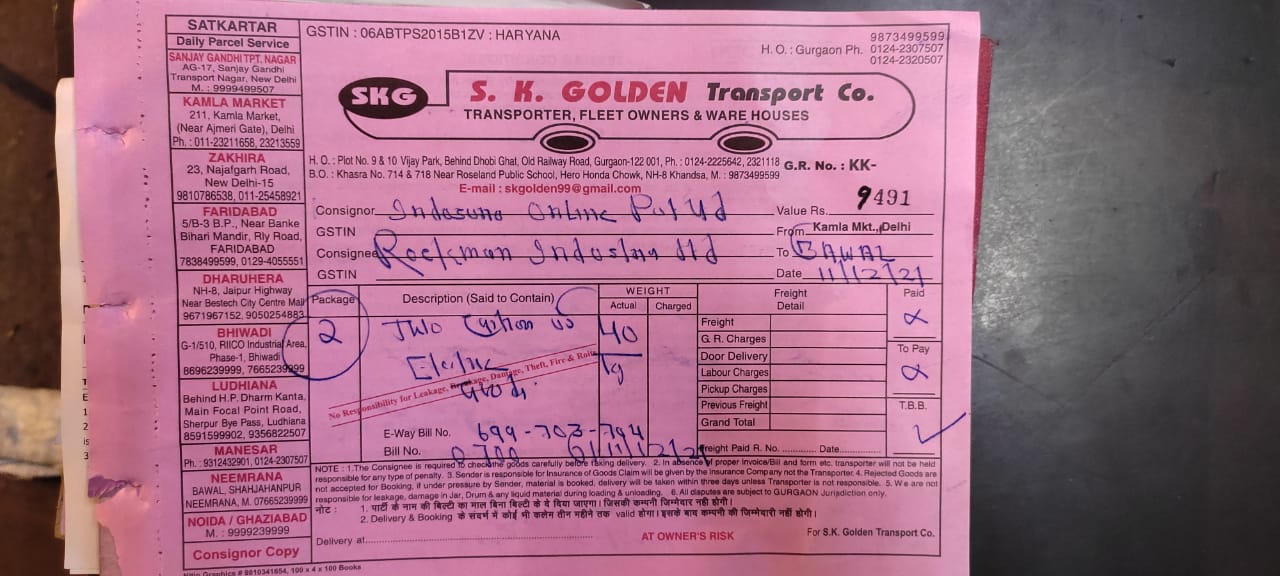 SATKARTAR
Daily Parcel Service
SANJAY GANDHI TPT. NAGAR
AG-17, Sanjay Gandhi
Transport Nagar, New Delhi
M. : 9999499507
KAMLA MARKET
211, Kamla Market,
(Near Ajmeri Gate), Delhi
Ph. : 011-23211658, 23213559
ZAKHIRA
23, Najafgarh Road,
New Delhi-15
9810786538, 011-25458921
FARIDABAD
5/B-3 B.P., Near Banke
Bihari Mandir, Rly Road,
FARIDABAD
7838499599, 0129-4055551
DHARUHERA
NH-8, Jaipur Highway
Near Bestech City Centre Mall
9671967152, 9050254883
BHIWADI
G-1/510, RIICO Industrial Area,
Phase-1, Bhiwadi
8696239999, 7665239999
LUDHIANA
Behind H.P. Dharm Kanta,
Main Focal Point Road,
Sherpur Bye Pass, Ludhiana
8591599902, 9356822507
MANESAR
Ph. : 9312432901, 0124-2307507
NEEMRANA
BAWAL, SHAHJAHANPUR
NEEMRANA, M. 07665239999
NOIDA / GHAZIABAD
M. : 9999239999
Consignor Copy
GSTIN : 06ABTPS2015B1ZV : HARYANA
9873499599
H. O. : Gurgaon Ph. 0124-2307507
0124-2320507
SKG
S. K. GOLDEN Transport Co.
TRANSPORTER, FLEET OWNERS & WARE HOUSES
H. O. : Plot No. 9 & 10 Vijay Park, Behind Dhobi Ghat, Old Railway Road, Gurgaon-122 001, Ph. : 0124-2225642, 2321118
B.O. : Khasra No. 714 & 718 Near Roseland Public School, Hero Honda Chowk, NH-8 Khandsa, M. : 9873499599
G.R. No. : KK-
E-mail : skgolden99@gmail.com
9491
Consignor Online
Value Rs.
GSTIN
From Kamla Mkt., Delhi
Consignee Rockman
To BAWAL
GSTIN
Date 11/12/21
Package Description (Said to Contain) WEIGHT Freight Detail Paid
Actual Charged
2 Two 40
Kg
Freight
G. R. Charges
Door Delivery
To Pay
Labour Charges
Pickup Charges
Previous Freight
T.B.B.
Grand Total
No Responsibility for Leakage, Breakage, Damage, Theft, Fire & Roits
E-Way Bill No. 699-703-794
Bill No.
Freight Paid R. No. Date
NOTE : 1.The Consignee is required to check the goods carefully before taking delivery. 2. In absence of proper Invoice/Bill and form etc. transporter will not be held
responsible for any type of penalty. 3. Sender is responsible for Insurance of Goods Claim will be given by the Insurance Company not the Transporter. 4. Rejected Goods are
not accepted for Booking, if under pressure by Sender, material is booked, delivery will be taken within three days unless Transporter is not responsible. 5. We are not
responsible for leakage, damage in Jar, Drum & any liquid material during loading & unloading. 6. All disputes are subject to GURGAON Jurisdiction only.
नोट : 1. पार्टी के नाम की बिल्टी का माल बिना बिल्टी के दे दिया जाएगा। जिसकी कम्पनी जिम्मेदार नहीं होगी।
2. Delivery & Booking के संदर्भ में कोई भी कलेम तीन महीने तक valid होगा। इसके बाद कम्पनी की जिम्मेदारी नहीं होगी।
Delivery at
AT OWNER'S RISK
For S.K. Golden Transport Co.
Nitin Graphics # 9810341654, 100 x 4 x 100 Books